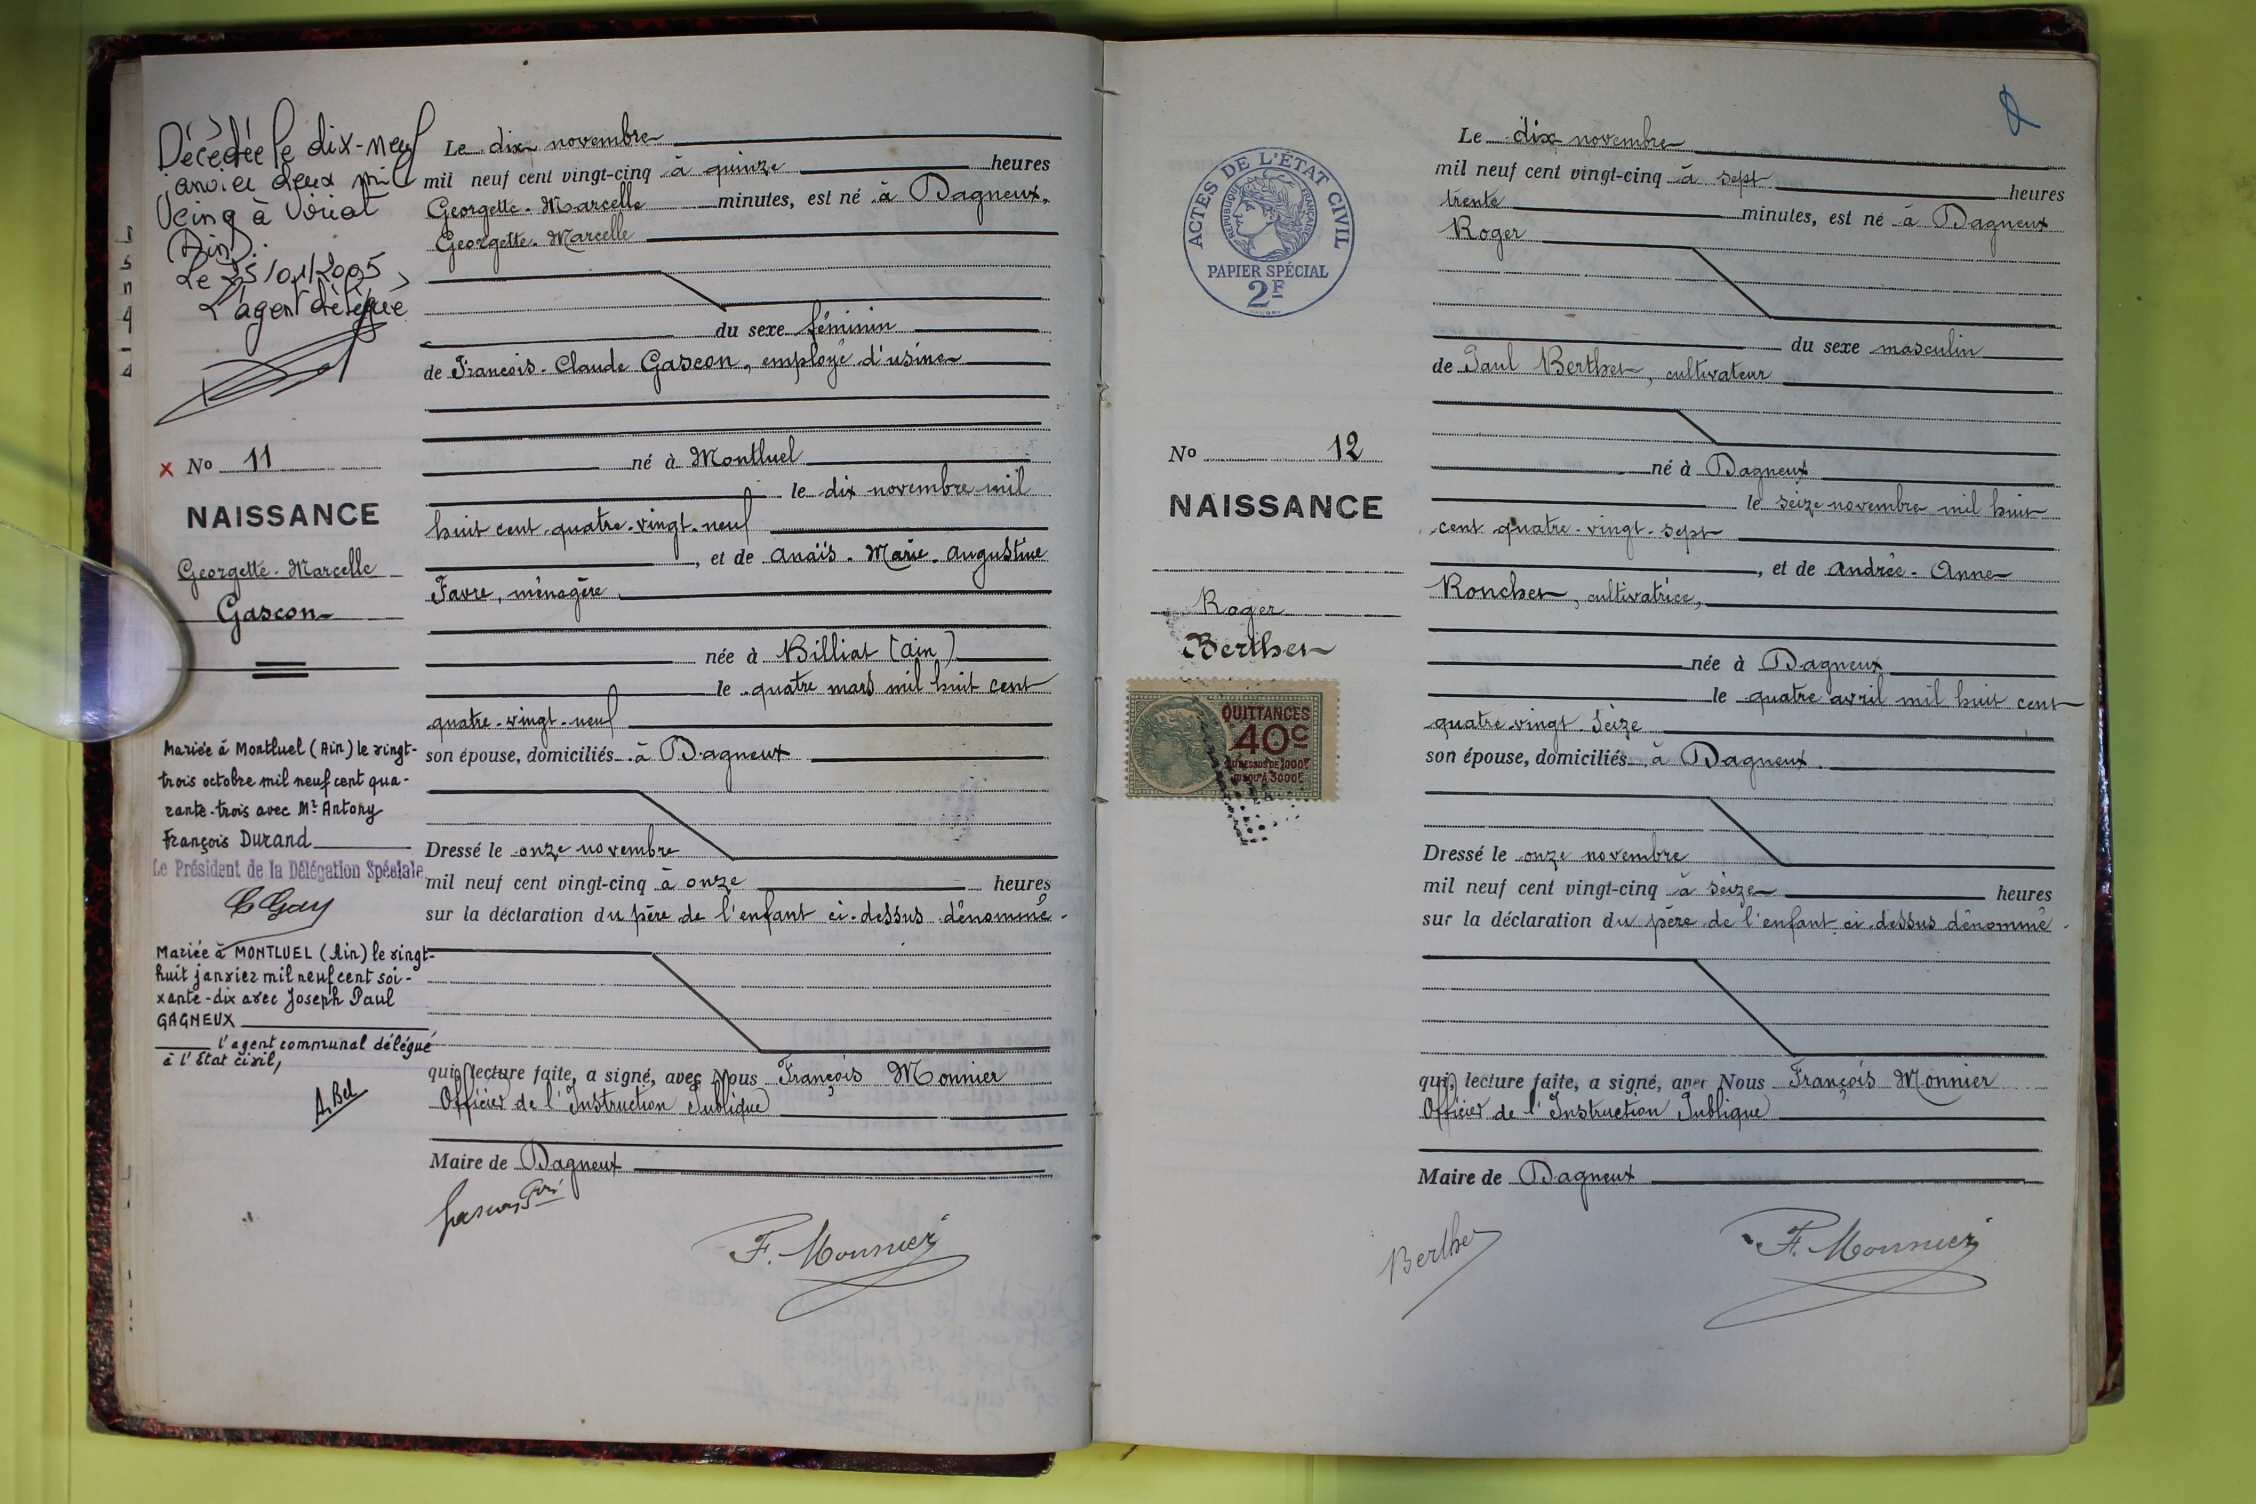 Décédée le dix-neuf
janvier deux mil
cinq à Viriat
(Ain).
Le 25/01/2005
L'agent délégué
x No 11
NAISSANCE
Georgette-Marcelle
Gascon
Mariée à Montluel (Ain) le vingt-
trois octobre mil neuf cent qua-
rante-trois avec Mr Antony
François Durand
Le Président de la Délégation Spéciale
C Gay
Mariée à MONTLUEL (Ain) le vingt-
huit janvier mil neuf cent soi-
xante-dix avec Joseph Paul
GAGNEUX
l'agent communal délégué
à l'Etat civil,
A. Bel
Le dix novembre
mil neuf cent vingt-cinq à quinze heures
Georgette-Marcelle minutes, est né à Dagneux.
Georgette-Marcelle
du sexe féminin
de François-Claude Gascon, employé d'usine
né à Montluel
le dix novembre mil
huit cent-quatre-vingt-neuf
, et de Anaïs-Marie-Augustine
Favre, ménagère
née à Billiat (Ain)
le quatre mars mil huit cent
quatre-vingt-neuf
son épouse, domiciliés à Dagneux
Dressé le onze novembre
mil neuf cent vingt-cinq à onze heures
sur la déclaration du père de l'enfant ci-dessus dénommé.
qui, lecture faite, a signé, avec Nous François Monnier
Officier de l'Instruction Publique
Maire de Dagneux
Gascon Fois
F. Monnier
ACTES DE L'ÉTAT CIVIL
RÉPUBLIQUE FRANÇAISE
PAPIER SPÉCIAL
2F
No 12
NAISSANCE
Roger
Berthet
QUITTANCES
40c
AU DESSUS DE 1000F
JUSQU'A 3000F
Le dix novembre
mil neuf cent vingt-cinq à sept heures
trente minutes, est né à Dagneux
Roger
du sexe masculin
de Paul Berthet, cultivateur
né à Dagneux
le seize novembre mil huit
cent quatre-vingt-sept
, et de Andrée-Anne
Ronchet, cultivatrice,
née à Dagneux
le quatre avril mil huit cent
quatre-vingt-seize
son épouse, domiciliés à Dagneux
Dressé le onze novembre
mil neuf cent vingt-cinq à seize heures
sur la déclaration du père de l'enfant ci-dessus dénommé.
qui, lecture faite, a signé, avec Nous François Monnier
Officier de l'Instruction Publique
Maire de Dagneux
Berthet
F. Monnier